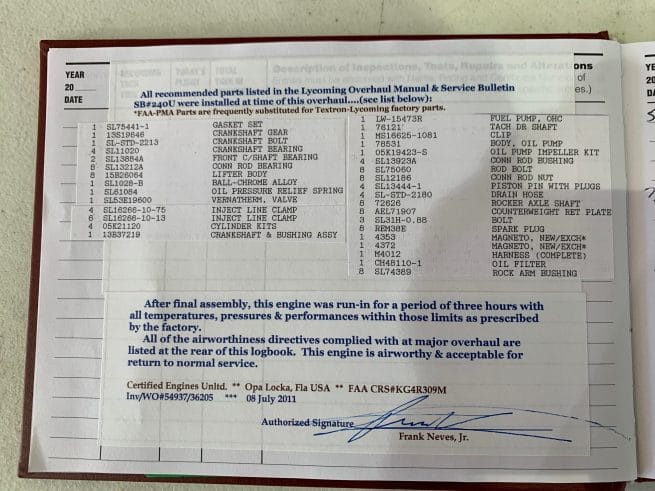 YEAR
20
DATE
Description of Inspections, Tests, Repairs and Alterations
All recommended parts listed in the Lycoming Overhaul Manual & Service Bulletin
SB#240U were installed at time of this overhaul....(see list below):
*FAA-PMA Parts are frequently substituted for Textron-Lycoming factory parts.
1 SL75441-1 GASKET SET
1 13S19646 CRANKSHAFT GEAR
1 SL-STD-2213 CRANKSHAFT BOLT
4 SL11020 CRANKSHAFT BEARING
2 SL13884A FRONT C/SHAFT BEARING
8 SL13212A CONN ROD BEARING
8 15B26064 LIFTER BODY
1 SL1028-B BALL-CHROME ALLOY
1 SL61084 OIL PRESSURE RELIEF SPRING
1 SL53E19600 VERNATHERM. VALVE
4 SL16266-10-75 INJECT LINE CLAMP
6 SL16266-10-13 INJECT LINE CLAMP
4 05K21120 CYLINDER KITS
1 13B37219 CRANKSHAFT & BUSHING ASSY
1 LW-15473R FUEL PUMP, OHC
1 76121' TACH DR SHAFT
1 MS16625-1081 CLIP
1 78531 BODY, OIL PUMP
1 05K19423-S OIL PUMP IMPELLER KIT
4 SL13923A CONN ROD BUSHING
8 SL75060 ROD BOLT
8 SL12186 CONN ROD NUT
4 SL13444-1 PISTON PIN WITH PLUGS
4 SL-STD-2180 DRAIN HOSE
8 72626 ROCKER AXLE SHAFT
8 AEL71907 COUNTERWEIGHT RET PLATE
3 SL31H-0.88 BOLT
8 REM38E SPARK PLUG
1 4353 MAGNETO, NEW/EXCH*
1 4372 MAGNETO, NEW/EXCH*
1 M4012 HARNESS (COMPLETE)
1 CH48110-1 OIL FILTER
8 SL74389 ROCK ARM BUSHING
After final assembly, this engine was run-in for a period of three hours with
all temperatures, pressures & performances within those limits as prescribed
by the factory.
All of the airworthiness directives complied with at major overhaul are
listed at the rear of this logbook. This engine is airworthy & acceptable for
return to normal service.
Certified Engines Unltd. ** Opa Locka, Fla USA ** FAA CRS#KG4R309M
Inv/WO#54937/36205 *** 08 July 2011
Authorized Signature
Frank Neves, Jr.